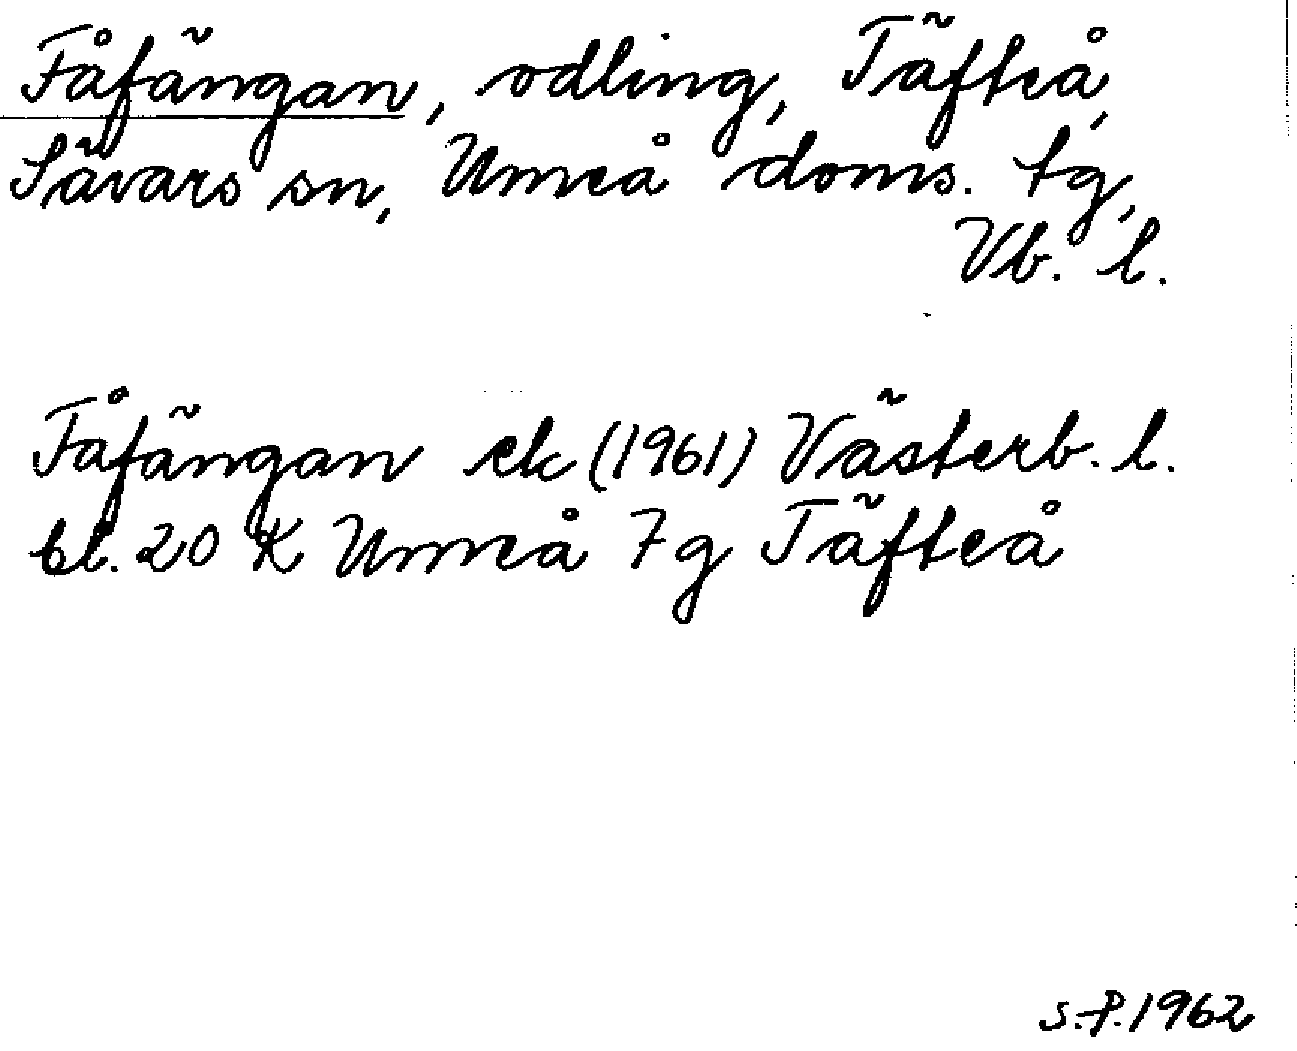 Fåfängan, odling, Täfteå,
Sävars sn, Umeå doms. tg,
Vb. l.
Fåfängan ek (1961) Västerb. l.
bl. 20 K Umeå 7 g Täfteå
S.-P. 1962